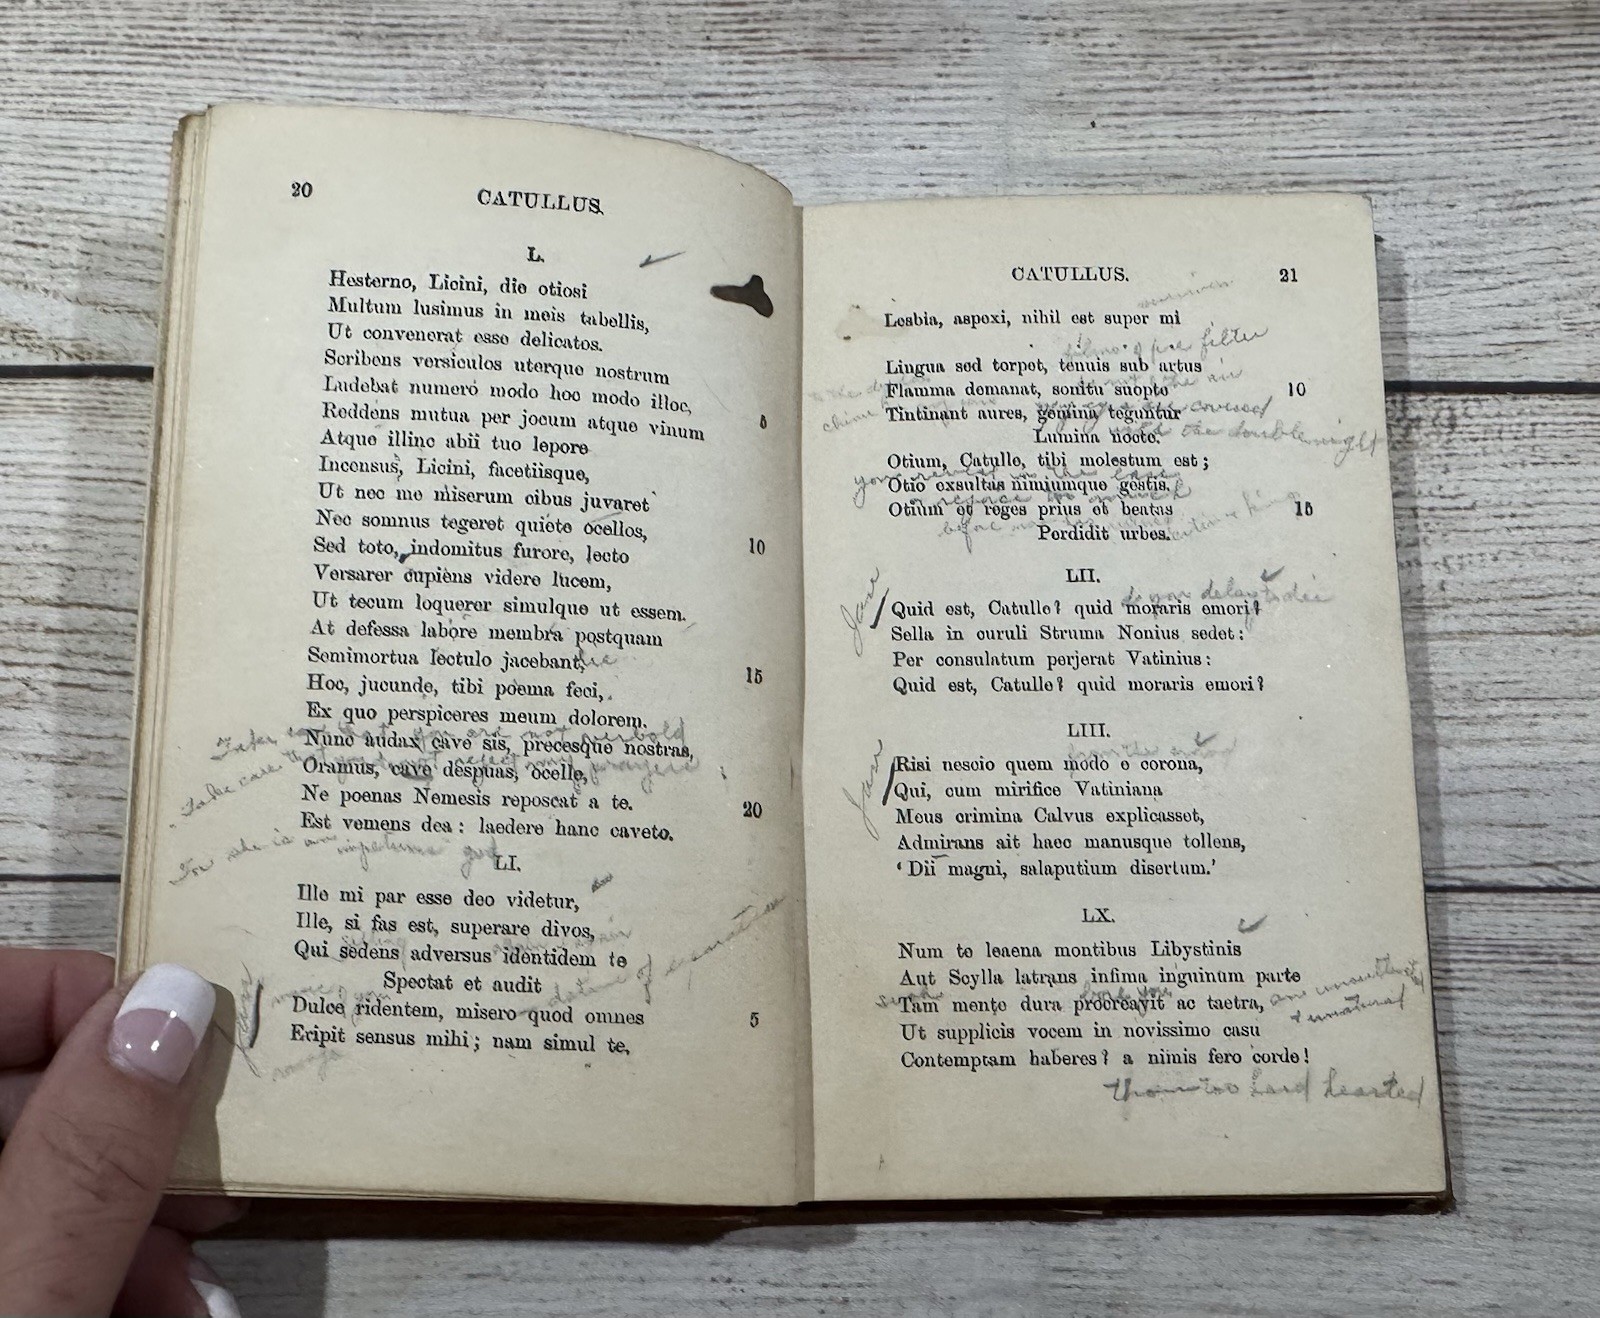 20
CATULLUS.
L.
Hesterno, Licini, die otiosi
Multum lusimus in meis tabellis,
Ut convenerat esse delicatos.
Scribens versiculos uterque nostrum
Ludebat numero modo hoc modo illoc,
Reddens mutua per jocum atque vinum 5
Atque illinc abii tuo lepore
Incensus, Licini, facetiisque,
Ut nec me miserum cibus juvaret
Nec somnus tegeret quiete ocellos,
Sed toto, indomitus furore, lecto 10
Versarer cupiens videre lucem,
Ut tecum loquerer simulque ut essem.
At defessa labore membra postquam
Semimortua lectulo jacebant,
Hoc, jucunde, tibi poema feci, 15
Ex quo perspiceres meum dolorem.
Take care that you are not
Nunc audax cave sis, precesque nostras,
Take care that you do not reject my prayers
Oramus, cave despuas, ocelle,
Ne poenas Nemesis reposcat a te. 20
Est vemens dea: laedere hanc caveto.
For she is an impetuous god
LI.
Ille mi par esse deo videtur,
Ille, si fas est, superare divos,
Qui sedens adversus identidem te
sitting
Spectat et audit
Dulce ridentem, misero quod omnes 5
Eripit sensus mihi; nam simul te,
CATULLUS.
21
Lesbia, aspexi, nihil est super mi
Lingua sed torpet, tenuis sub artus
Flamma demanat, sonitu suopte 10
Tintinant aures, gemina teguntur
covered
Lumina nocte.
with the double night
Otium, Catulle, tibi molestum est;
Otio exsultas nimiumque gestis.
Otium et reges prius et beatas 15
before
Perdidit urbes.
LII.
do you delay to die
Quid est, Catulle? quid moraris emori?
Sella in curuli Struma Nonius sedet:
Per consulatum perjerat Vatinius:
Quid est, Catulle? quid moraris emori?
LIII.
from the
Risi nescio quem modo e corona,
Qui, cum mirifice Vatiniana
Meus crimina Calvus explicasset,
Admirans ait haec manusque tollens,
'Dii magni, salaputium disertum.'
LX.
Num te leaena montibus Libystinis
Aut Scylla latrans infima inguinum parte
Tam mente dura procreavit ac taetra,
Ut supplicis vocem in novissimo casu
Contemptam haberes? a nimis fero corde!
thou too hard hearted